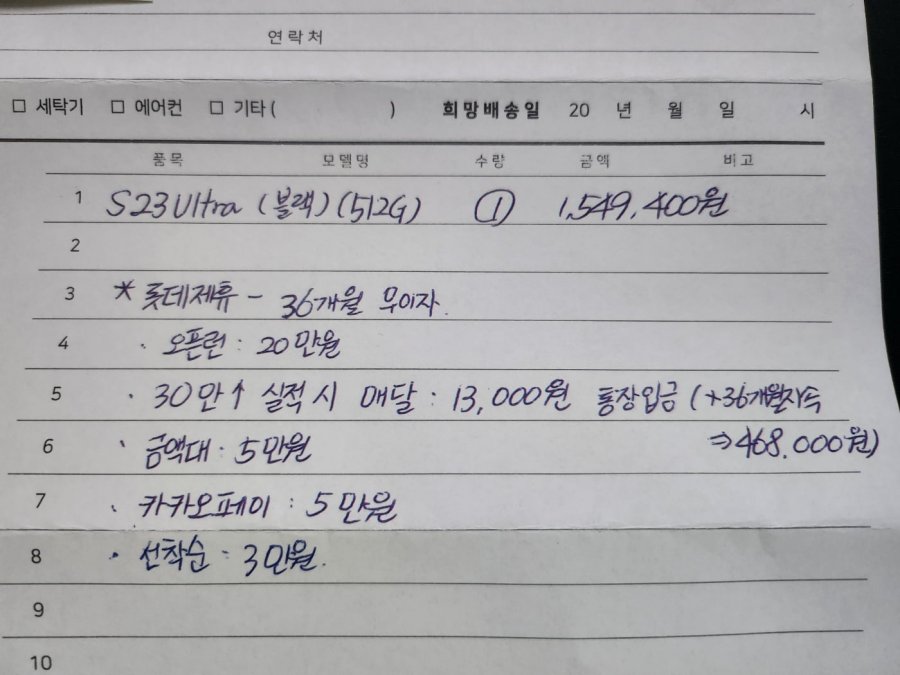 연락처
□ 세탁기 □ 에어컨 □ 기타 ( ) 희망배송일 20 년 월 일 시
품목 모델명 수량 금액 비고
1 S23 Ultra (블랙) (512G) ① 1,549,400원
2
3 * 롯데제휴 - 36개월 무이자.
4 · 오픈런 : 20만원
5 · 30만↑ 실적시 매달 : 13,000원 통장입금 (*36개월지속
6 · 금액대 : 5만원 ⇒468,000원)
7 · 카카오페이 : 5만원
8 · 선착순 : 3만원.
9
10